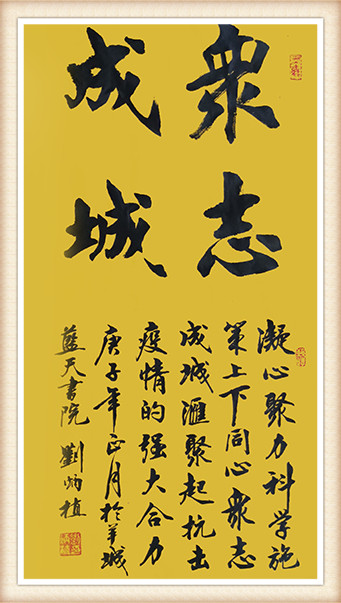 衆志
成城
凝心聚力科学施
策上下同心衆志
成城匯聚起抗击
疫情的强大合力
庚子年正月於羊城
藍天書院 劉炳植